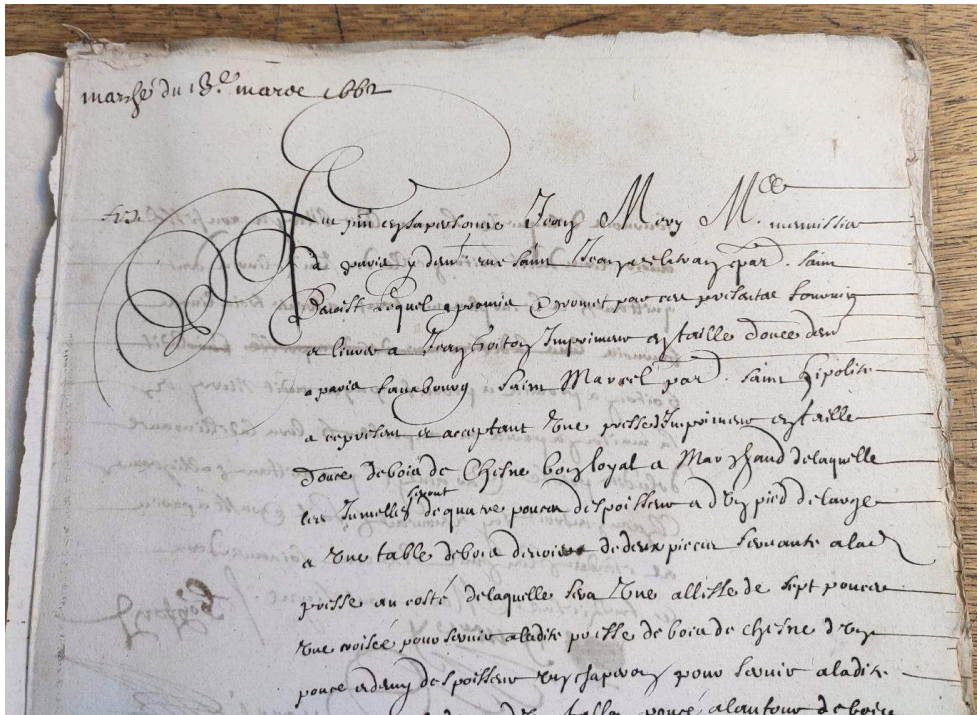 marché du 18.e marce 1662
fut p̄nt en sa personne Jean Mery M. Me menuissier
a paris y demt rue Saint Jean de latran par. Saint
Benoist Lequel a promis & promet par ces presentes fournir
et livrer a Jean Goiton Imprimeur en taille douce demt
a paris faubourg Saint Marcel par. Saint hipolite
a ce present et acceptant Une presse dImprimeur en taille
douce de bois de Chesne bon loyal et Marchand de laquelle
les Jumelles seront de quatre pouces despoisseur et dun pied de large
et Une table de bois de noier de deux pieces servante a lad
presse au costé de laquelle sera Une allisse de sept pouces
Une croisée pour servir a ladite presse de bois de chesne dun
pouce et demy despoisseur un chaperon pour servir a ladite
pouce alantour de bois